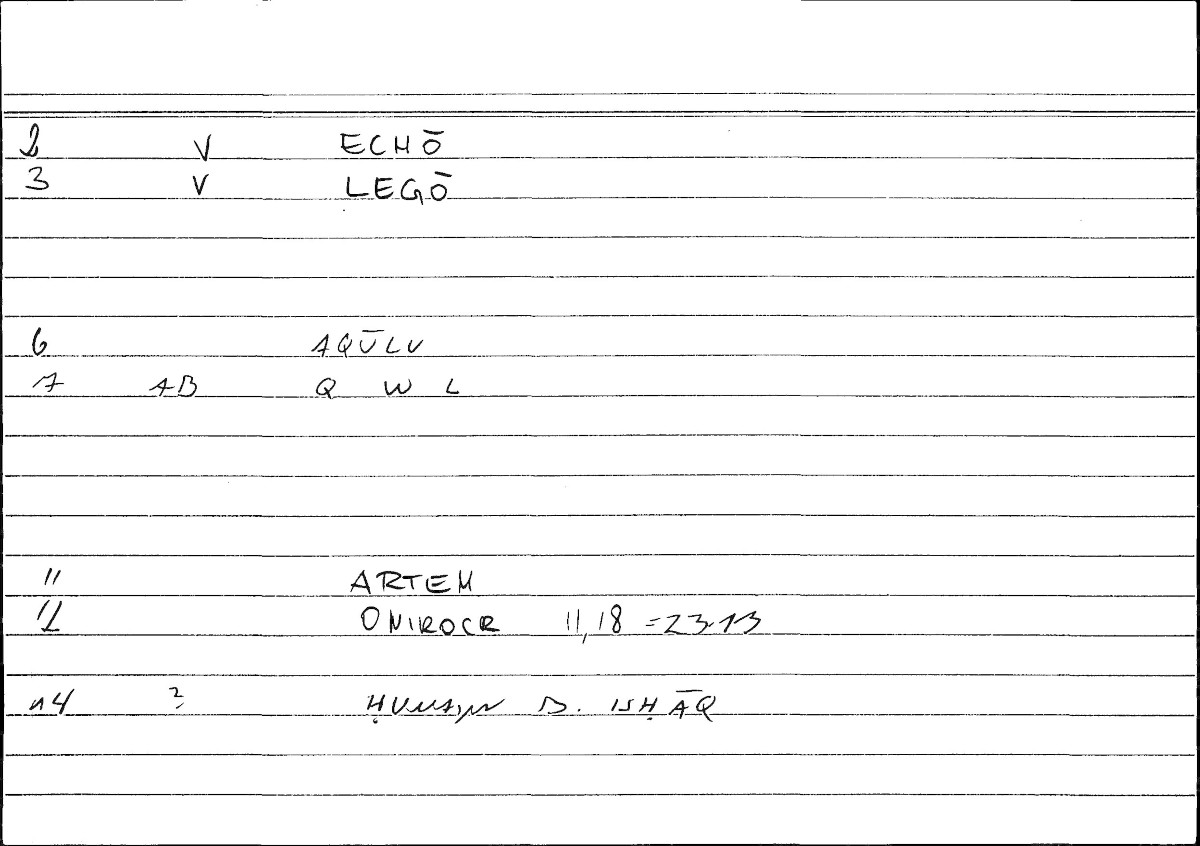 2 V ECHŌ
3 V LEGŌ
6 AQŪLU
7 AB Q W L
11 ARTEM
12 ONIROCR 11,18 =23.13
14 ? ḤUNAYN B. ISḤĀQ